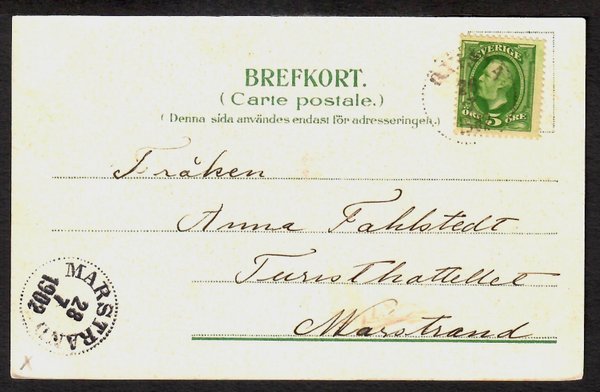 SVERIGE
ÖRE 5 ÖRE
BREFKORT.
(Carte postale.)
(Denna sida användes endast för adresseringen.)
Fröken
Anna Fahlstedt
Turisthotellet
Marstrand
MARSTRAND
28
7
1902